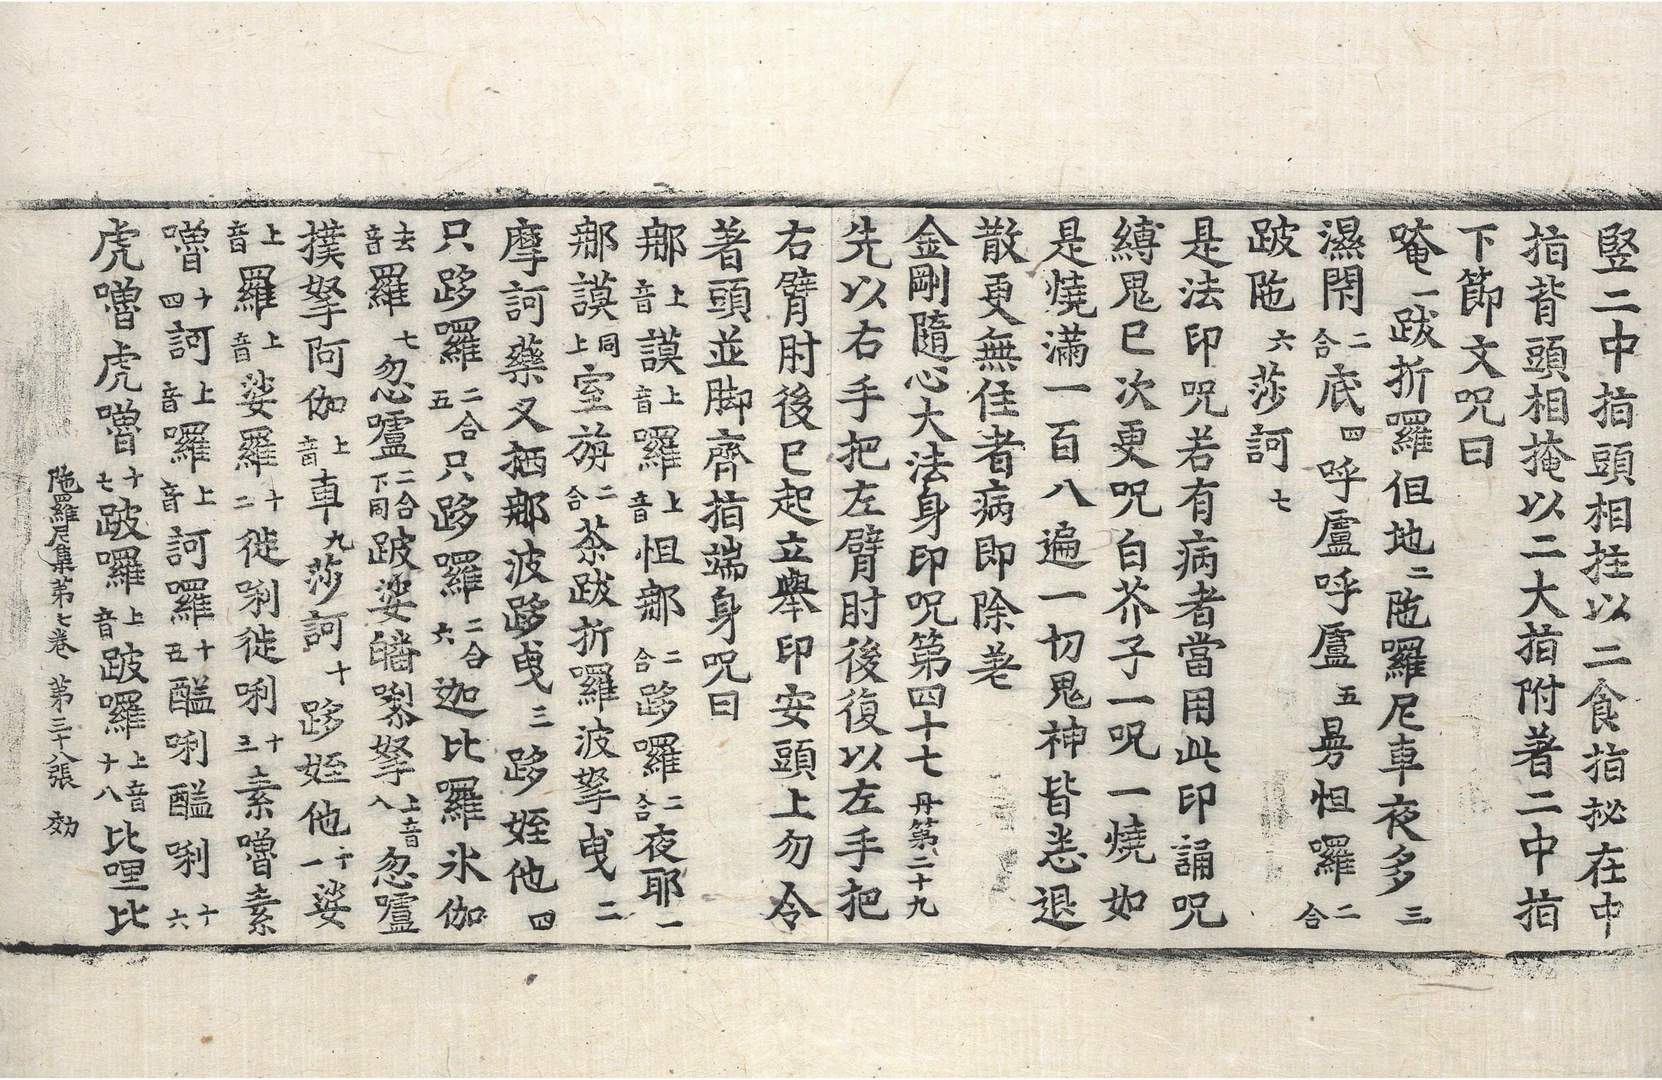 竪二中指頭相拄以二食指祕在中
指背頭相掩以二大指附著二中指
下節文呪曰
唵一跋折囉但地二陁羅尼車夜多三
濕閇二合底四呼盧呼盧五㫟怛囉二合
跛陁六莎訶七
是法印呪若有病者當用此印誦呪
縛鬼已次更呪白芥子一呪一燒如
是燒滿一百八遍一切鬼神皆悉退
散更無住者病即除差
金剛隨心大法身印呪第四十七丹第二十九
先以右手把左臂肘後復以左手把
右臂肘後已起立舉印安頭上勿令
著頭並脚齊指端身呪曰
那上音謨上音囉上音怛那二合跢囉二合夜耶一
那謨同上室旃二合荼跋折囉波拏曳二
摩訶藥叉栖那波跢曳三跢姪他四
只跢囉二合五只跢囉二合六迦比羅氷伽
去音羅七忽嚧二合下同跛娑皤㗚拏上音八忽嚧
撲拏阿伽上音車九莎訶十跢姪他十一娑
上音羅上音娑羅十二徙唎徙唎十三素嚕素
嚕十四訶上音囉上音訶囉十五醯唎醯唎十六
虎嚕虎嚕十七跛囉上音跛囉上音十八比哩比
陁羅尼集第七卷 第三十八張 効